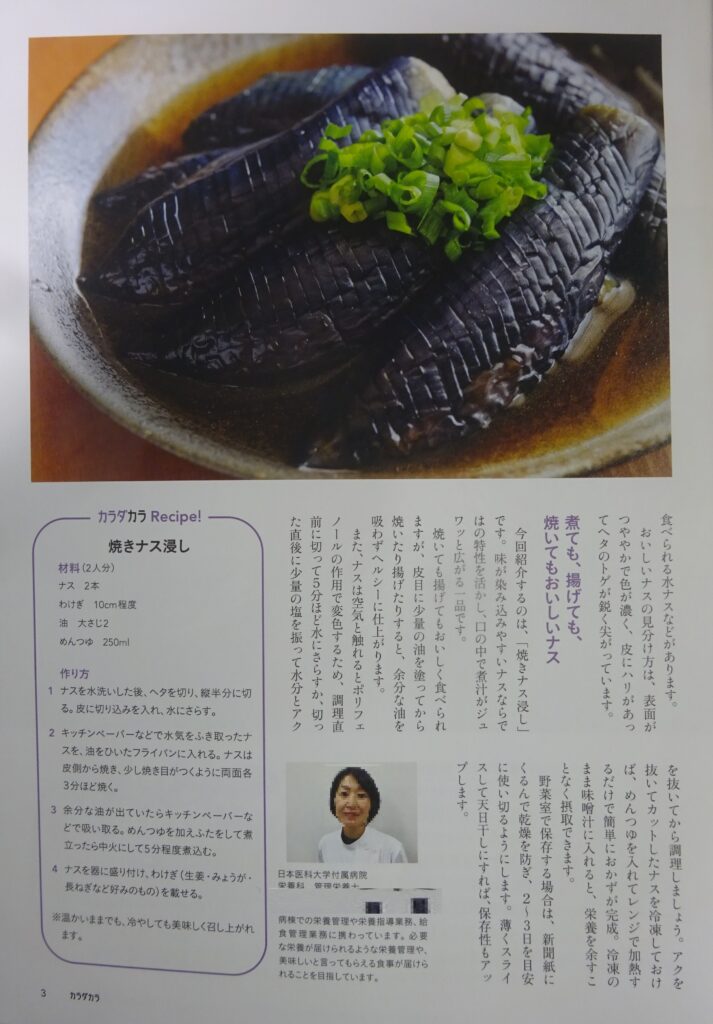 食べられる水ナスなどがあります。
おいしいナスの見分け方は、表面が
つややかで色が濃く、皮にハリがあっ
てヘタのトゲが鋭く尖がっています。
煮ても、揚げても、
焼いてもおいしいナス
今回紹介するのは、「焼きナス浸し」
です。味が染み込みやすいナスならで
はの特性を活かし、口の中で煮汁がジュ
ワッと広がる一品です。
焼いても揚げてもおいしく食べられ
ますが、皮目に少量の油を塗ってから
焼いたり揚げたりすると、余分な油を
吸わずヘルシーに仕上がります。
また、ナスは空気と触れるとポリフェ
ノールの作用で変色するため、調理直
前に切って5分ほど水にさらすか、切っ
た直後に少量の塩を振って水分とアク
を抜いてから調理しましょう。アクを
抜いてカットしたナスを冷凍しておけ
ば、めんつゆを入れてレンジで加熱す
るだけで簡単におかずが完成。冷凍の
まま味噌汁に入れると、栄養を余すこ
となく摂取できます。
野菜室で保存する場合は、新聞紙に
くるんで乾燥を防ぎ、2〜3日を目安
に使い切るようにします。薄くスライ
スして天日干しにすれば、保存性もアッ
プします。
カラダカラ Recipe!
焼きナス浸し
材料(2人分)
ナス 2本
わけぎ 10cm程度
油 大さじ2
めんつゆ 250ml
作り方
1 ナスを水洗いした後、ヘタを切り、縦半分に切
る。皮に切り込みを入れ、水にさらす。
2 キッチンペーパーなどで水気をふき取ったナ
スを、油をひいたフライパンに入れる。ナスは
皮側から焼き、少し焼き目がつくように両面各
3分ほど焼く。
3 余分な油が出ていたらキッチンペーパーな
どで吸い取る。めんつゆを加えふたをして煮
立ったら中火にして5分程度煮込む。
4 ナスを器に盛り付け、わけぎ(生姜・みょうが・
長ねぎなど好みのもの)を載せる。
※温かいままでも、冷やしても美味しく召し上がれ
ます。
日本医科大学付属病院
栄養科 管理栄養士
病棟での栄養管理や栄養指導業務、給
食管理業務に携わっています。必要
な栄養が届けられるような栄養管理や、
美味しいと言ってもらえる食事が届けら
れることを目指しています。
3 カラダカラ